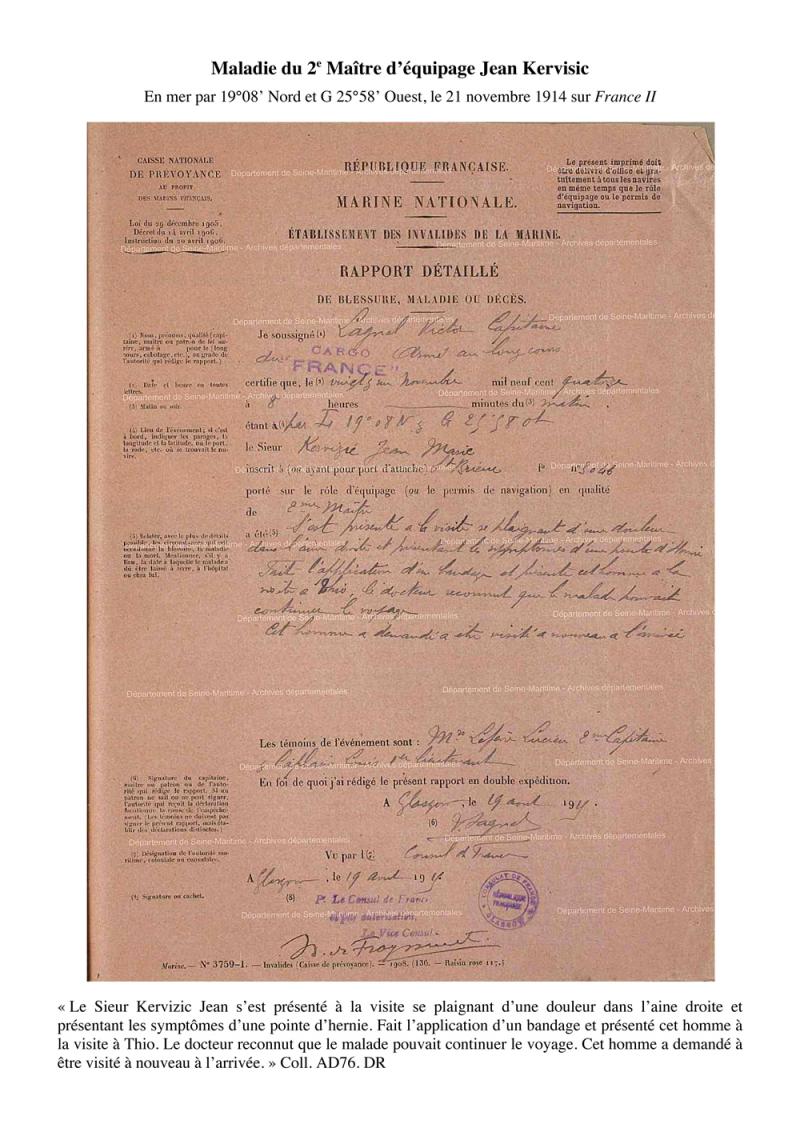 Maladie du 2e Maître d’équipage Jean Kervisic
En mer par 19°08’ Nord et G 25°58’ Ouest, le 21 novembre 1914 sur France II
CAISSE NATIONALE
DE PRÉVOYANCE
AU PROFIT
DES MARINS FRANÇAIS.
Loi du 29 décembre 1905.
Décret du 14 avril 1906.
Instruction du 20 avril 1906.
RÉPUBLIQUE FRANÇAISE.
MARINE NATIONALE.
ÉTABLISSEMENT DES INVALIDES DE LA MARINE.
Le présent imprimé doit
être délivré d'office et gra-
tuitement à tous les navires
en même temps que le rôle
d'équipage ou le permis de
navigation.
Département de Seine-Maritime - Archives départementales
RAPPORT DÉTAILLÉ
DE BLESSURE, MALADIE OU DÉCÈS.
(1) Nom, prénoms, qualité (capi-
taine, maître ou patron de tel na-
vire, armé à pour le (long
cours, cabotage, etc.), ou grade de
l'autorité qui rédige le rapport.)
Je soussigné (1) Lagnel Victor Capitaine
du CARGO Armé au long cours
"FRANCE"
(2) Date et heure en toutes
lettres.
certifie que, le (2) vingt un Novembre mil neuf cent quatorze
(3) Matin ou soir.
à 8 heures minutes du (3) matin.
(4) Lieu de l'événement; si c'est
à bord, indiquer les parages, la
longitude et la latitude, ou le port,
la rade, etc. où se trouvait le na-
vire.
étant à (4) par 19°08 N G 25°58 Ot
le Sieur Kervizic Jean Marie
inscrit à (ou ayant pour port d'attache) St Brieuc fo no 3046
porté sur le rôle d'équipage (ou le permis de navigation) en qualité
de 2eme Maître
(5) Relater, avec le plus de détails
possible, les circonstances qui ont
occasionné la blessure, la maladie
ou la mort. Mentionner, s'il y a
lieu, la date à laquelle le malade a
dû être laissé à terre, à l'hôpital
ou chez lui.
a été (5) S'est présenté à la visite se plaignant d'une douleur
dans l'aine droite et présentant les symptômes d'une pointe d'hernie
Fait l'application d'un bandage et présenté cet homme a la
visite à Thio, le docteur reconnut que le malade pouvait
continuer le voyage
Cet homme a demandé a être visité a nouveau a l'arrivée
Les témoins de l'événement sont : Mrs Lefèvre Lucien 2me Capitaine
1er lieutenant
En foi de quoi j'ai rédigé le présent rapport en double expédition.
(6) Signature du capitaine,
maître ou patron ou de l'auto-
rité qui rédige le rapport. Si un
patron ne sait ou ne peut signer,
l'autorité qui reçoit la déclaration
mentionne la cause de l'empêche-
ment. (Les témoins ne doivent pas
signer le présent rapport, mais éta-
blir des déclarations distinctes.)
A Glasgow, le 19 avril 1915.
(6) V. Lagnel
(7) Désignation de l'autorité ma-
ritime, coloniale ou consulaire.
Vu par l (7) Consul de France
A Glasgow, le 19 avril 1915
(8) Signature ou cachet.
(8) P. Le Consul de France
et par autorisation,
Le Vice Consul.
CONSULAT DE FRANCE
RÉPUBLIQUE FRANÇAISE
GLASGOW
Marine. — No 3759-1. — Invalides (Caisse de prévoyance). — 1908. (136. — Raisin rose 117.)
« Le Sieur Kervizic Jean s’est présenté à la visite se plaignant d’une douleur dans l’aine droite et
présentant les symptômes d’une pointe d’hernie. Fait l’application d’un bandage et présenté cet homme à
la visite à Thio. Le docteur reconnut que le malade pouvait continuer le voyage. Cet homme a demandé à
être visité à nouveau à l’arrivée. » Coll. AD76. DR